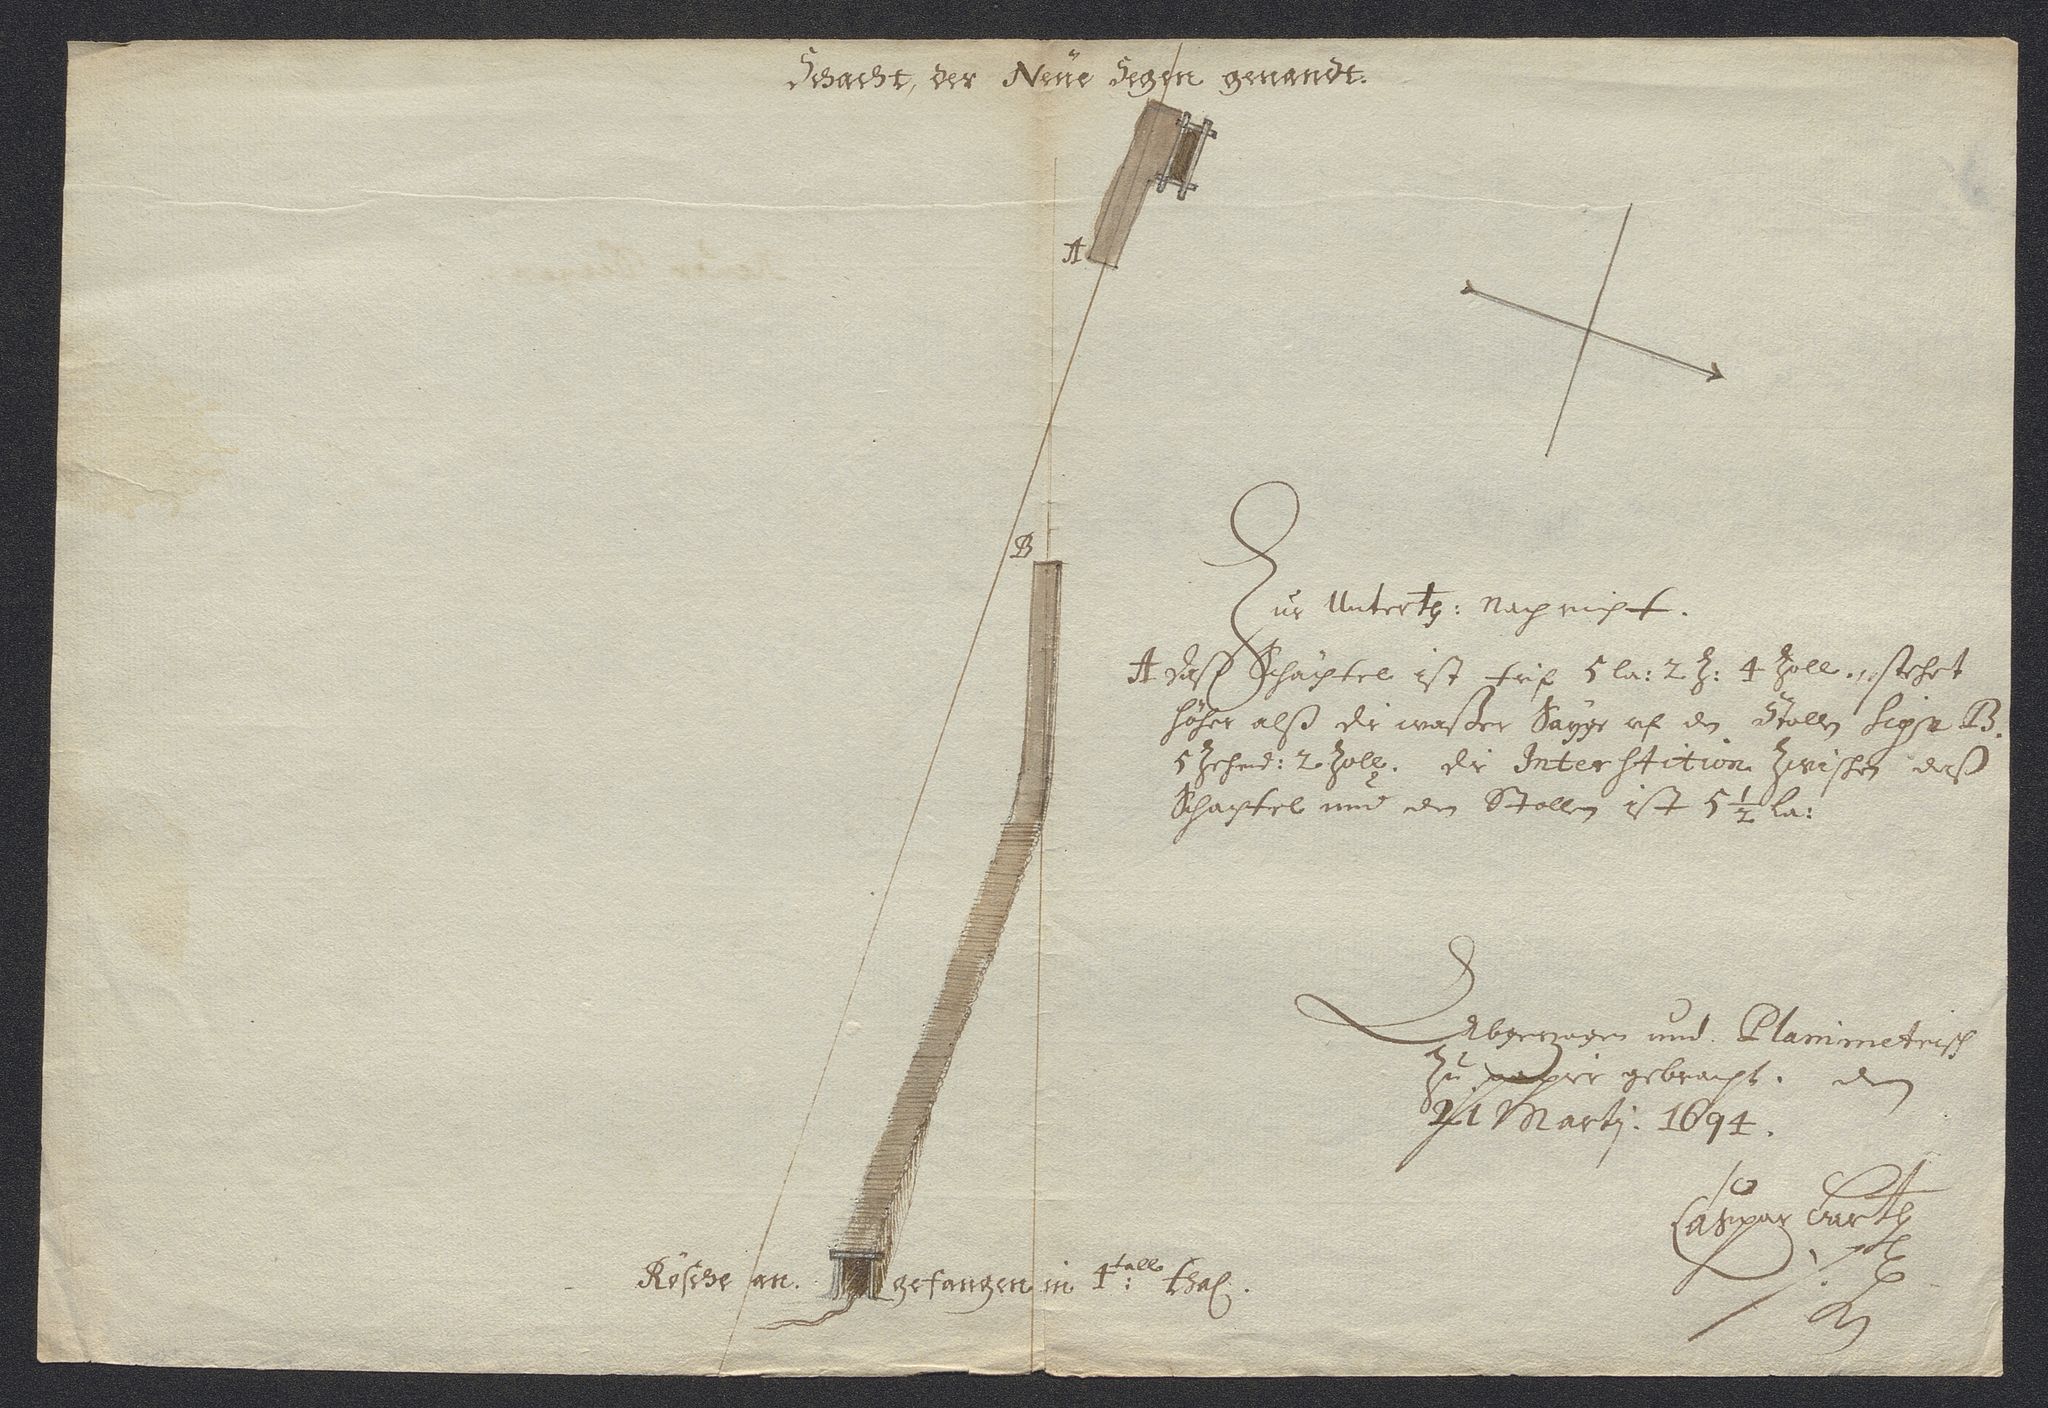 Schacht, der Neüe Segen genandt.
A
B
Zur Unterth: Nachricht.
A daß Schächtel ist tief 5 la: 2 Z: 4 Zoll., stehet
höher alß die waßer Sayge uf den Stollen Sign B.
5 Zehend: 2 Zoll. die Interstition Zwischen daß
Schachtel und den Stollen ist 5 1/2 la:
Abgezogen und Planimetrisch
Zu papir gebracht. den
21 Martij. 1694.
Caspar Barth
Rösche an. gefangen in 4: thal.